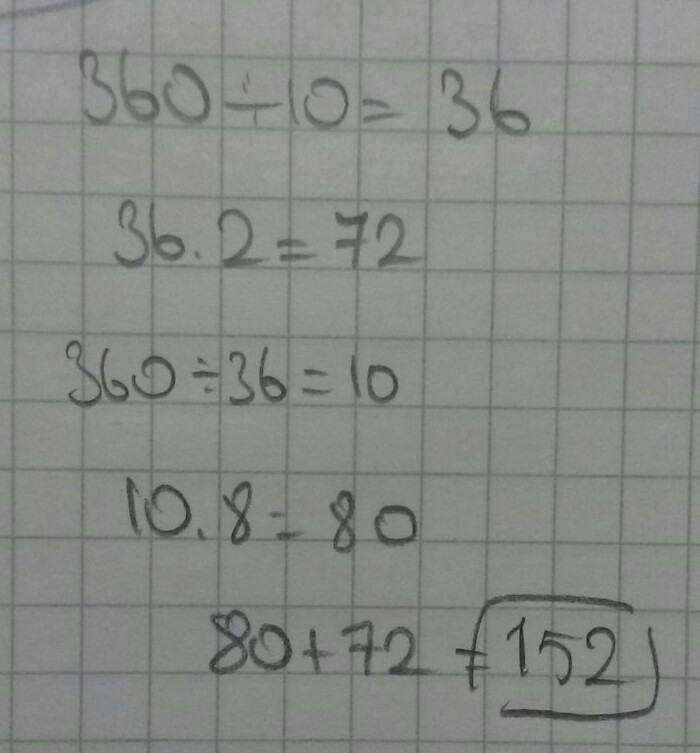 360÷10= 36
36.2=72
360÷36=10
10.8= 80
80+72 =152